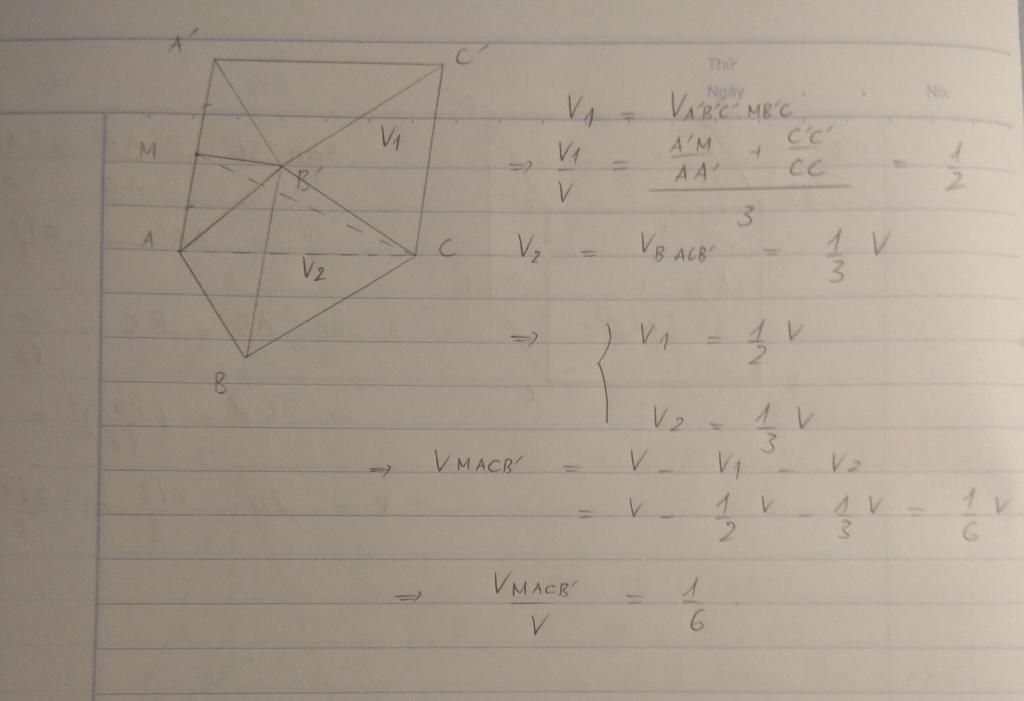 A' C'
Thứ
Ngày No.
M V1 B'
A C
V2
B
V1 = VA'B'C'.MB'C
⇒ V1/V = (A'M/AA' + C'C'/CC)/3 = 1/2
V2 = VB ACB' = 1/3 V
⇒ { V1 = 1/2 V
V2 = 1/3 V
⇒ VMACB' = V - V1 - V2
= V - 1/2 V - 1/3 V = 1/6 V
⇒ VMACB'/V = 1/6